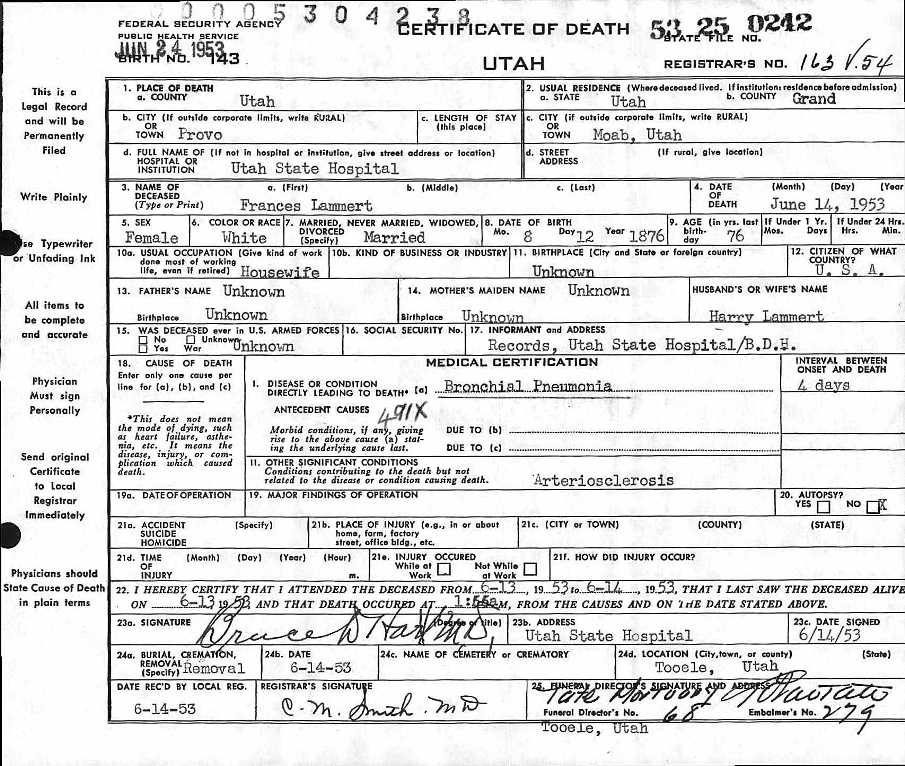 0005304238
FEDERAL SECURITY AGENCY
PUBLIC HEALTH SERVICE
JUN 24 1953
BIRTH NO. 143
CERTIFICATE OF DEATH
UTAH
53 25 0242
STATE FILE NO.
REGISTRAR'S NO. 163 V.54
This is a
Legal Record
and will be
Permanently
Filed
Write Plainly
se Typewriter
or Unfading Ink
All items to
be complete
and accurate
Physician
Must sign
Personally
Send original
Certificate
to Local
Registrar
Immediately
Physicians should
State Cause of Death
in plain terms
1. PLACE OF DEATH
a. COUNTY Utah
2. USUAL RESIDENCE (Where deceased lived. If institution: residence before admission)
a. STATE Utah b. COUNTY Grand
b. CITY (If outside corporate limits, write RURAL)
OR
TOWN Provo
c. LENGTH OF STAY
(this place)
c. CITY (if outside corporate limits, write RURAL)
OR
TOWN Moab, Utah
d. FULL NAME OF (If not in hospital or institution, give street address or location)
HOSPITAL OR
INSTITUTION Utah State Hospital
d. STREET (If rural, give location)
ADDRESS
3. NAME OF DECEASED (Type or Print) a. (First) b. (Middle) c. (Last)
Frances Lammert
4. DATE OF DEATH (Month) (Day) (Year
June 14, 1953
5. SEX
Female
6. COLOR OR RACE
White
7. MARRIED, NEVER MARRIED, WIDOWED,
DIVORCED
(Specify) Married
8. DATE OF BIRTH
Mo. 8 Day 12 Year 1876
9. AGE (in yrs. last
birth-
day 76
If Under 1 Yr.
Mos. Days
If Under 24 Hrs.
Hrs. Min.
10a. USUAL OCCUPATION (Give kind of work
done most of working
life, even if retired) Housewife
10b. KIND OF BUSINESS OR INDUSTRY
11. BIRTHPLACE (City and State or foreign country)
Unknown
12. CITIZEN OF WHAT
COUNTRY?
U. S. A.
13. FATHER'S NAME Unknown
Birthplace Unknown
14. MOTHER'S MAIDEN NAME Unknown
Birthplace Unknown
HUSBAND'S OR WIFE'S NAME
Harry Lammert
15. WAS DECEASED ever in U.S. ARMED FORCES
No Unknown
Yes War Unknown
16. SOCIAL SECURITY No.
17. INFORMANT and ADDRESS
Records, Utah State Hospital/B.D.H.
18. CAUSE OF DEATH
Enter only one cause per
line for (a), (b), and (c)
*This does not mean
the mode of dying, such
as heart failure, asthe-
nia, etc. It means the
disease, injury, or com-
plication which caused
death.
MEDICAL CERTIFICATION
I. DISEASE OR CONDITION
DIRECTLY LEADING TO DEATH* (a) Bronchial Pneumonia
ANTECEDENT CAUSES 491X
Morbid conditions, if any, giving
rise to the above cause (a) stat-
ing the underlying cause last.
DUE TO (b)
DUE TO (c)
11. OTHER SIGNIFICANT CONDITIONS
Conditions contributing to the death but not
related to the disease or condition causing death. Arteriosclerosis
INTERVAL BETWEEN
ONSET AND DEATH
4 days
19a. DATE OF OPERATION
19. MAJOR FINDINGS OF OPERATION
20. AUTOPSY?
YES NO X
21a. ACCIDENT (Specify)
SUICIDE
HOMICIDE
21b. PLACE OF INJURY (e.g., in or about
home, farm, factory
street, office bldg., etc.
21c. (CITY or TOWN) (COUNTY) (STATE)
21d. TIME (Month) (Day) (Year) (Hour)
OF
INJURY m.
21e. INJURY OCCURED
While at Work Not While at Work
21f. HOW DID INJURY OCCUR?
22. I HEREBY CERTIFY THAT I ATTENDED THE DECEASED FROM 6-13, 1953 to 6-14, 1953, THAT I LAST SAW THE DECEASED ALIVE
ON 6-13 1953 AND THAT DEATH OCCURED AT 1:55a M, FROM THE CAUSES AND ON THE DATE STATED ABOVE.
23a. SIGNATURE (Degree or title)
Bruce D Hart M.D.
23b. ADDRESS
Utah State Hospital
23c. DATE SIGNED
6/14/53
24a. BURIAL, CREMATION,
REMOVAL
(Specify) Removal
24b. DATE
6-14-53
24c. NAME OF CEMETERY or CREMATORY
24d. LOCATION (City, town, or county) (State)
Tooele, Utah
DATE REC'D BY LOCAL REG.
6-14-53
REGISTRAR'S SIGNATURE
C. M. Smith. MD
25. FUNERAL DIRECTOR'S SIGNATURE AND ADDRESS
Tate Mortuary
Funeral Director's No. 68 Embalmer's No. 279
Tooele, Utah